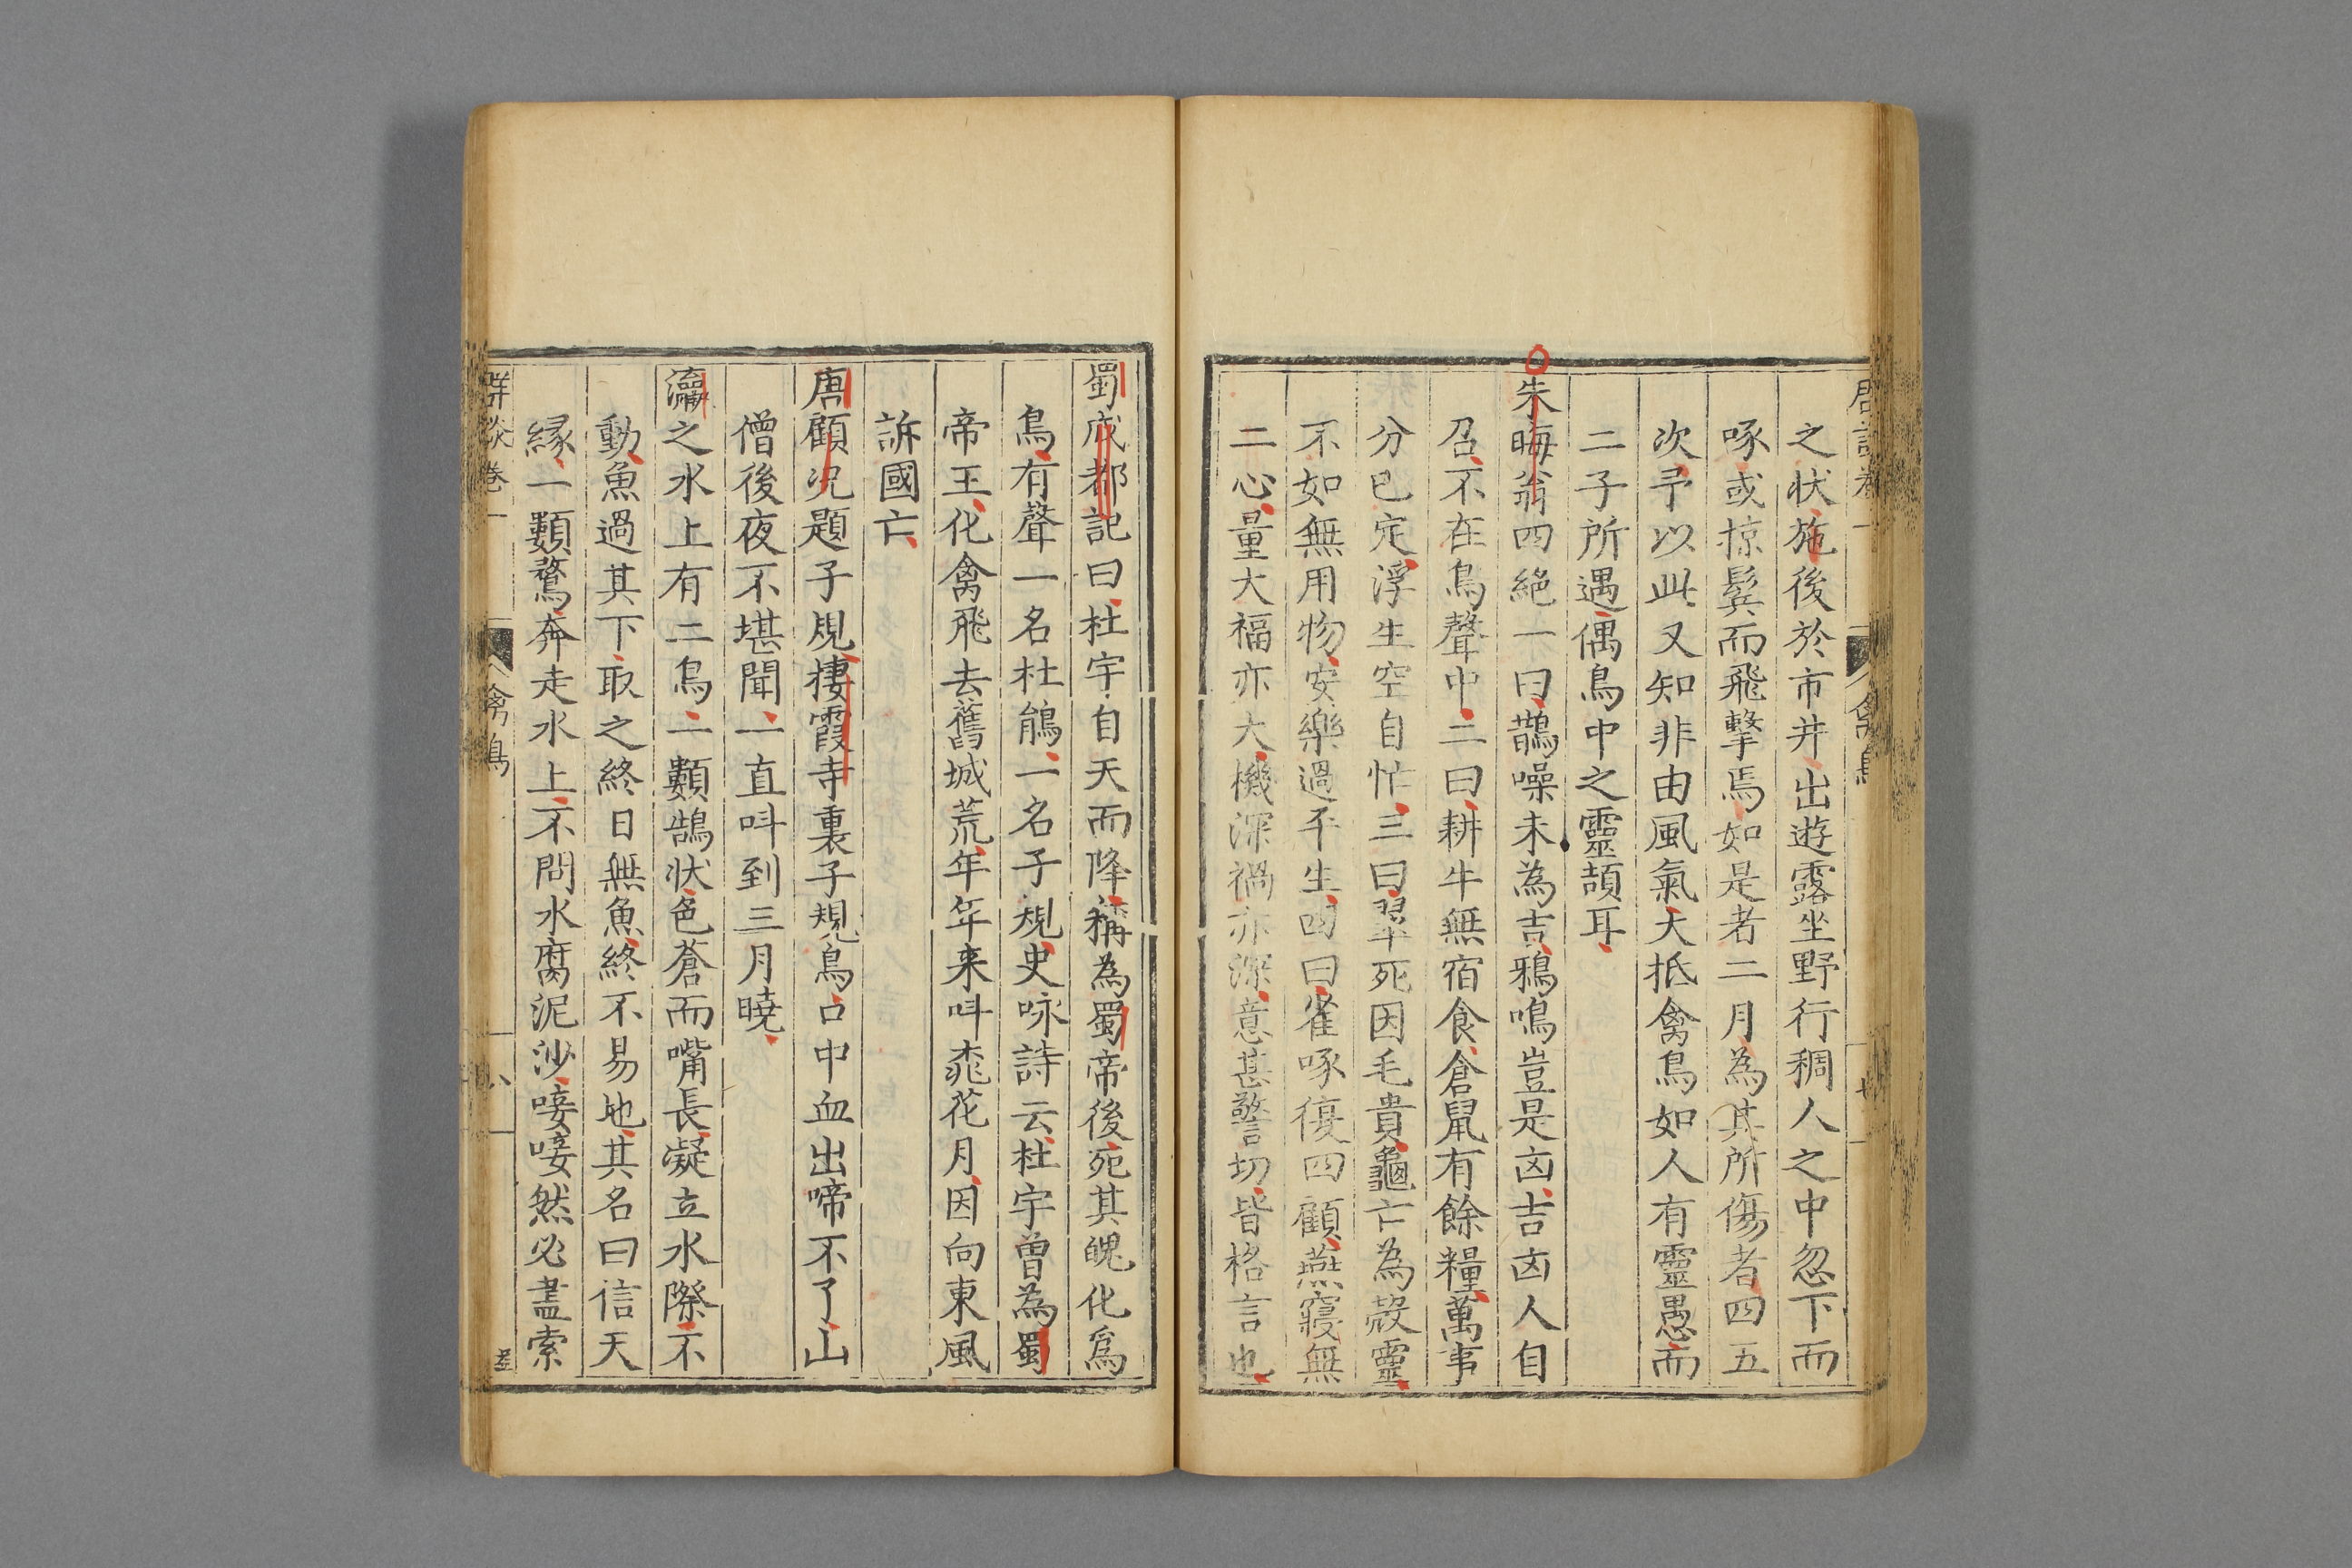 之状施後於市井出遊露坐野行稠人之中忽下而
啄或掠鬂而飛擊焉如是者二月為其所傷者四五
次予以此又知非由風氣大抵禽鳥如人有靈愚而
二子所遇偶鳥中之靈頡耳
朱晦翁四絕一曰鵲噪未為吉鴉鳴豈是凶吉凶人自
召不在鳥聲中二曰耕牛無宿食倉鼠有餘糧萬事
分已定浮生空自忙三曰翠死因毛貴龜亡為殼靈
不如無用物安樂過平生四曰雀啄復四顧燕寢無
二心量大福亦大機深禍亦深意甚警切皆格言也
蜀成都記曰杜宇自天而降稱為蜀帝後死其魄化為
鳥有聲一名杜鵑一名子規史咏詩云杜宇曾為蜀
帝王化禽飛去舊城荒年年来呌桃花月因向東風
訴國亡
唐顧况題子規棲霞寺裏子規鳥口中血出啼不了山
僧後夜不堪聞一直呌到三月曉
瀛之水上有二鳥一類鵠状色蒼而嘴長凝立水際不
動魚過其下取之終日無魚終不易地其名曰信天
縁一類鶩奔走水上不問水腐泥沙唼唼然必盡索
群談卷一
禽鳥
八